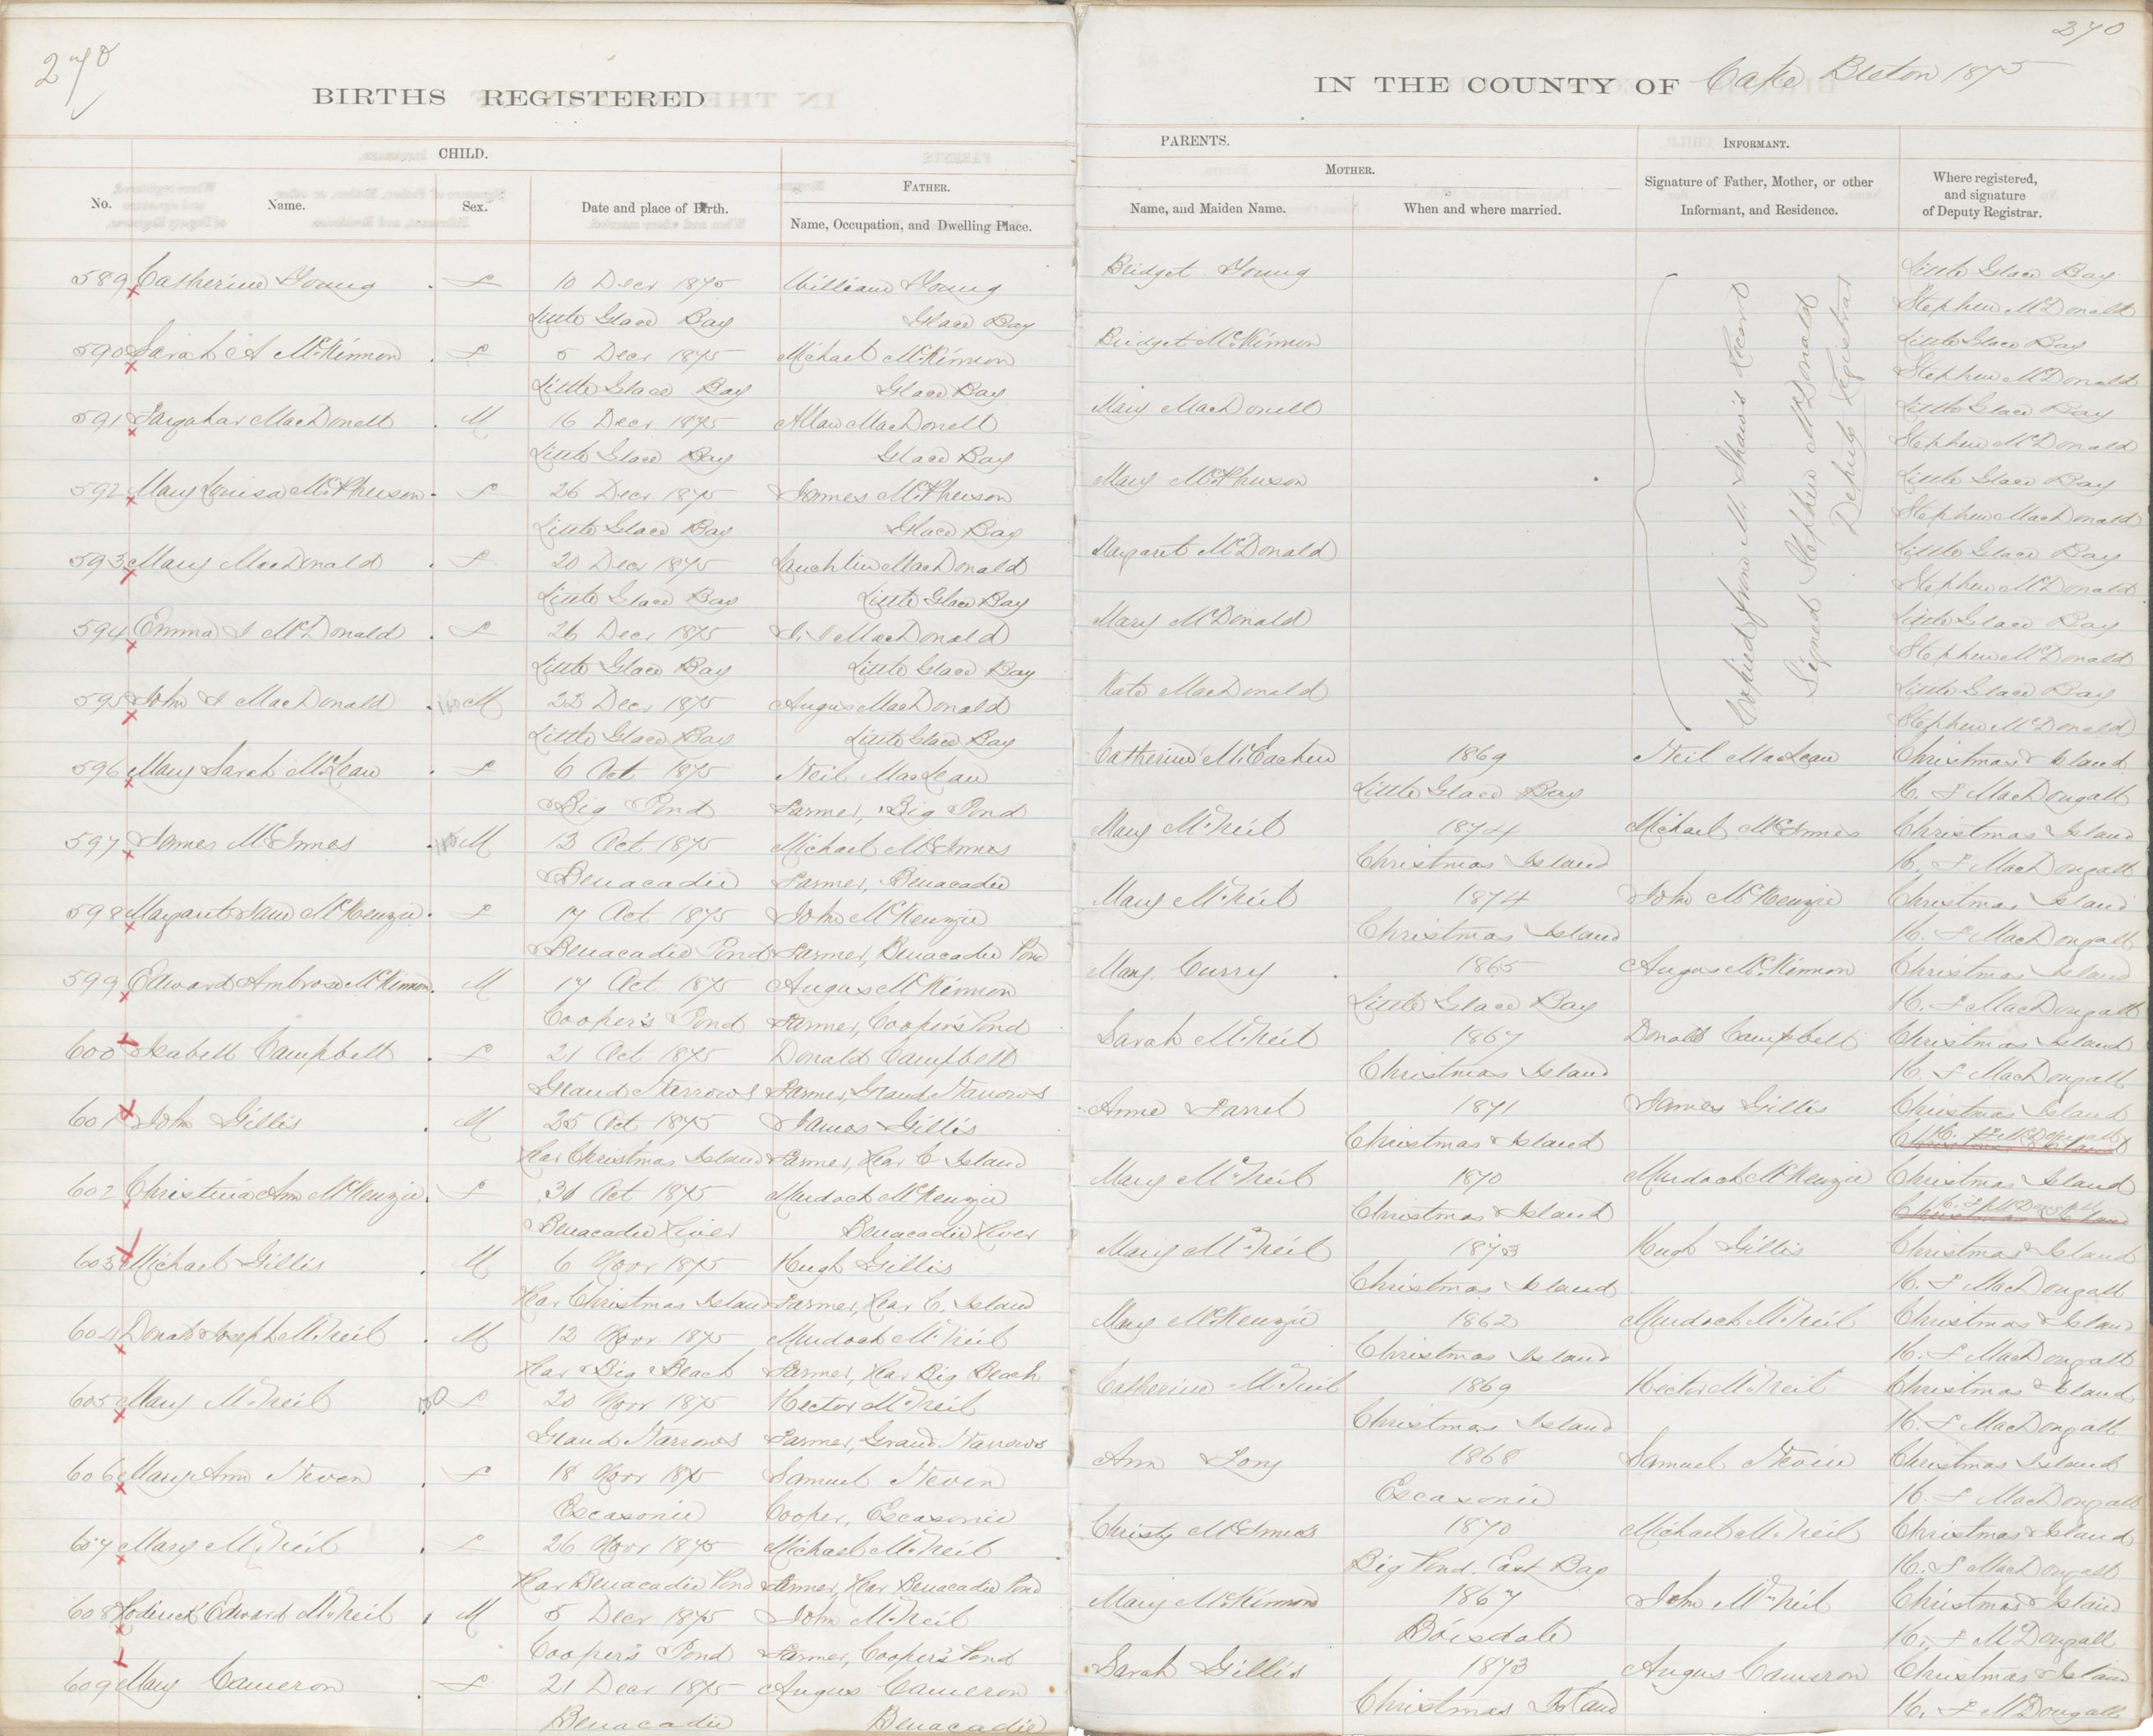 270
270
BIRTHS REGISTERED
IN THE COUNTY OF Cape Breton 1875
CHILD.
PARENTS.
INFORMANT.
FATHER.
MOTHER.
No.
Name.
Sex.
Date and place of Birth.
Name, Occupation, and Dwelling Place.
Name, and Maiden Name.
When and where married.
Signature of Father, Mother, or other
Informant, and Residence.
Where registered,
and signature
of Deputy Registrar.
589 Catherine Young F 10 Decr 1875 William Young Bridget Young Little Glace Bay
Little Glace Bay Glace Bay Stephen McDonald
590 Sarah A McKinnon F 5 Decr 1875 Michael McKinnon Bridget McKinnon Little Glace Bay
Little Glace Bay Glace Bay Stephen McDonald
591 Farquhar MacDonell M 16 Decr 1875 Allan MacDonell Mary MacDonell Little Glace Bay
Little Glace Bay Glace Bay Stephen McDonald
592 Mary Louisa McPherson F 26 Decr 1875 James McPherson Mary McPherson Little Glace Bay
Little Glace Bay Glace Bay Stephen MacDonald
593 Mary MacDonald F 20 Decr 1875 Lauchlin MacDonald Margaret McDonald Little Glace Bay
Little Glace Bay Little Glace Bay Stephen McDonald
594 Emma J McDonald F 26 Decr 1875 J. J MacDonald Mary McDonald Little Glace Bay
Little Glace Bay Little Glace Bay Stephen McDonald
595 John J MacDonald M 22 Decr 1875 Angus MacDonald Kate MacDonald Little Glace Bay
Little Glace Bay Little Glace Bay Stephen McDonald
Copied from M. Shaw's Record
Signed Stephen McDonald
Deputy Registrar
596 Mary Sarah McLean F 6 Oct 1875 Neil MacLean Catherine McEachen 1869 Neil MacLean Christmas Island
Big Pond Farmer, Big Pond Little Glace Bay H. F MacDougall
597 James McInnes M 13 Oct 1875 Michael McInnes Mary McNeil 1874 Michael McInnes Christmas Island
Benacadie Farmer, Benacadie Christmas Island H. F MacDougall
598 Margaret Jane McKenzie F 17 Oct 1875 John McKenzie Mary McNeil 1874 John McKenzie Christmas Island
Benacadie Pond Farmer, Benacadie Pond Christmas Island H. F MacDougall
599 Edward Ambrose McKinnon M 17 Oct 1875 Angus McKinnon Mary Curry 1865 Angus McKinnon Christmas Island
Cooper's Pond Farmer, Cooper's Pond Little Glace Bay H. F MacDougall
600 Isabell Campbell F 21 Oct 1875 Donald Campbell Sarah McNeil 1867 Donald Campbell Christmas Island
Grand Narrows Farmer, Grand Narrows Christmas Island H. F MacDougall
601 John Gillis M 25 Oct 1875 James Gillis Anne Farrel 1871 James Gillis Christmas Island
Rear Christmas Island Farmer, Rear C Island Christmas Island H. F McDougall
602 Christina Ann McKenzie F 31 Oct 1875 Murdoch McKenzie Mary McNeil 1870 Murdoch McKenzie Christmas Island
Benacadie River Benacadie River Christmas Island H. F McDougall
603 Michael Gillis M 6 Novr 1875 Hugh Gillis Mary McNeil 1873 Hugh Gillis Christmas Island
Rear Christmas Island Farmer, Rear C. Island Christmas Island H. F MacDougall
604 Donald Joseph McNeil M 12 Novr 1875 Murdoch McNeil Mary McKenzie 1862 Murdoch McNeil Christmas Island
Rear Big Beach Farmer, Rear Big Beach Christmas Island H. F MacDougall
605 Mary McNeil F 20 Novr 1875 Hector McNeil Catherine McNeil 1869 Hector McNeil Christmas Island
Grand Narrows Farmer, Grand Narrows Christmas Island H. F MacDougall
606 Mary Ann Neven F 18 Novr 1875 Samuel Neven Ann Long 1868 Samuel Nevin Christmas Island
Escasonie Cooper, Escasonie Escasonie H. F MacDougall
607 Mary McNeil F 26 Novr 1875 Michael McNeil Christy McInnes 1870 Michael McNeil Christmas Island
Rear Benacadie Pond Farmer, Rear Benacadie Pond Big Pond, East Bay H. F MacDougall
608 Roderick Edward McNeil M 5 Decr 1875 John McNeil Mary McKinnon 1867 John McNeil Christmas Island
Cooper's Pond Farmer, Cooper's Pond Boisdale H. F McDougall
609 Mary Cameron F 21 Decr 1875 Angus Cameron Sarah Gillis 1873 Angus Cameron Christmas Island
Benacadie Benacadie Christmas Island H. F McDougall